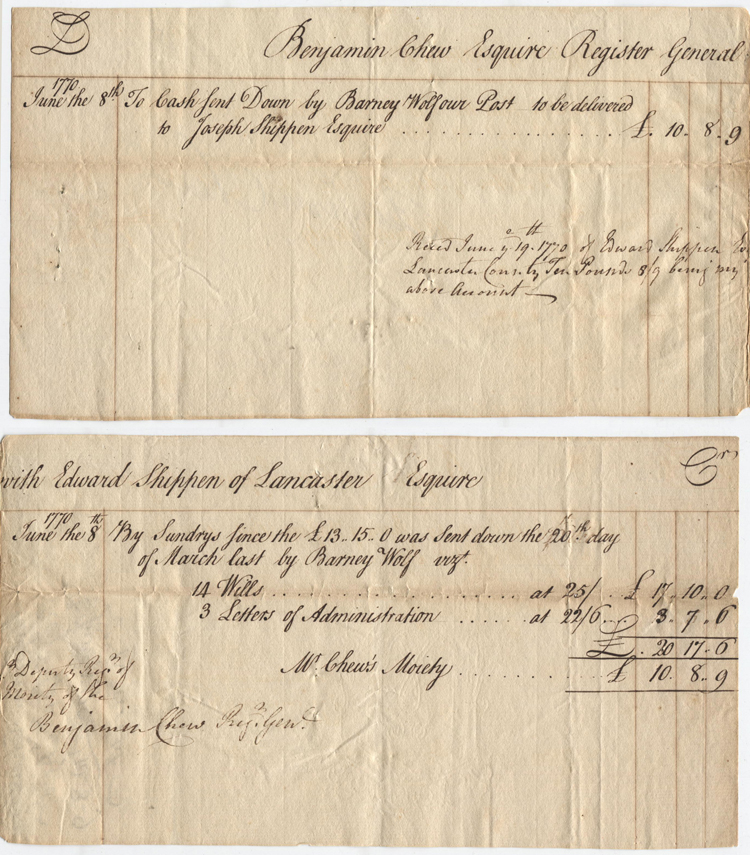 D
Benjamin Chew Esquire Register General
1770
June the 8th To Cash sent Down by Barney Wolf our Post to be delivered
to Joseph Shippen Esquire . . . . . . . . . . . . . . . . £. 10. 8. 9
Reced June ye 19th 1770 of Edward Shippen
Lancaster County Ten Pounds 8/9 being my
above Account
with Edward Shippen of Lancaster Esquire
Cr
1770
June the 8th By Sundrys since the £13..15..0 was sent down the 20th day
of March last by Barney Wolf vizt.
14 Wills . . . . . . . . . . . . . . . . . . . at 25/ . £ 17. 10. 0
3 Letters of Administration . . . . . . at 22/6 . . 3. 7. 6
£. 20 17. 6
Mr. Chew's Moiety . . . . . . . . . . . £ 10. 8. 9
Deputy Regr. of
Moiety of the
Benjamin Chew Regr. Genl.